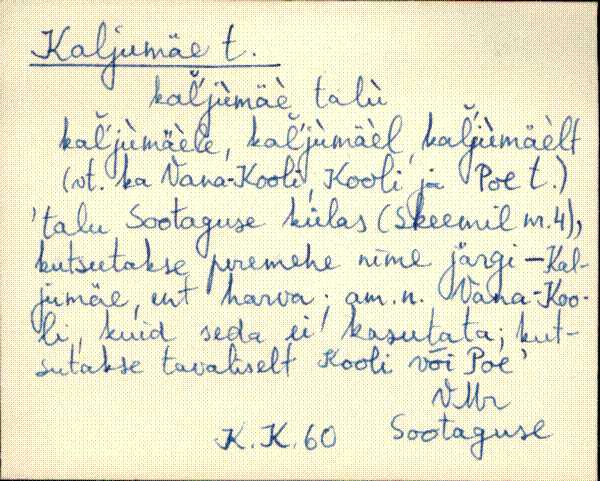 Kaljumäe t.
kaľjùmäè talù
kaľjùmäèle, kaľjùmäèl, kaľjùmäèlt
(vt. ka Vana-Kooli, Kooli ja Poe t.)
'talu Sootaguse külas (Skeemil nr. 4),
kutsutakse peremehe nime järgi – Kal-
jumäe, ent harva; am. n. Vana-Koo-
li, kuid seda ei kasutata; kut-
sutakse tavaliselt Kooli või Poe'
VMr
K.K. 60 Sootaguse